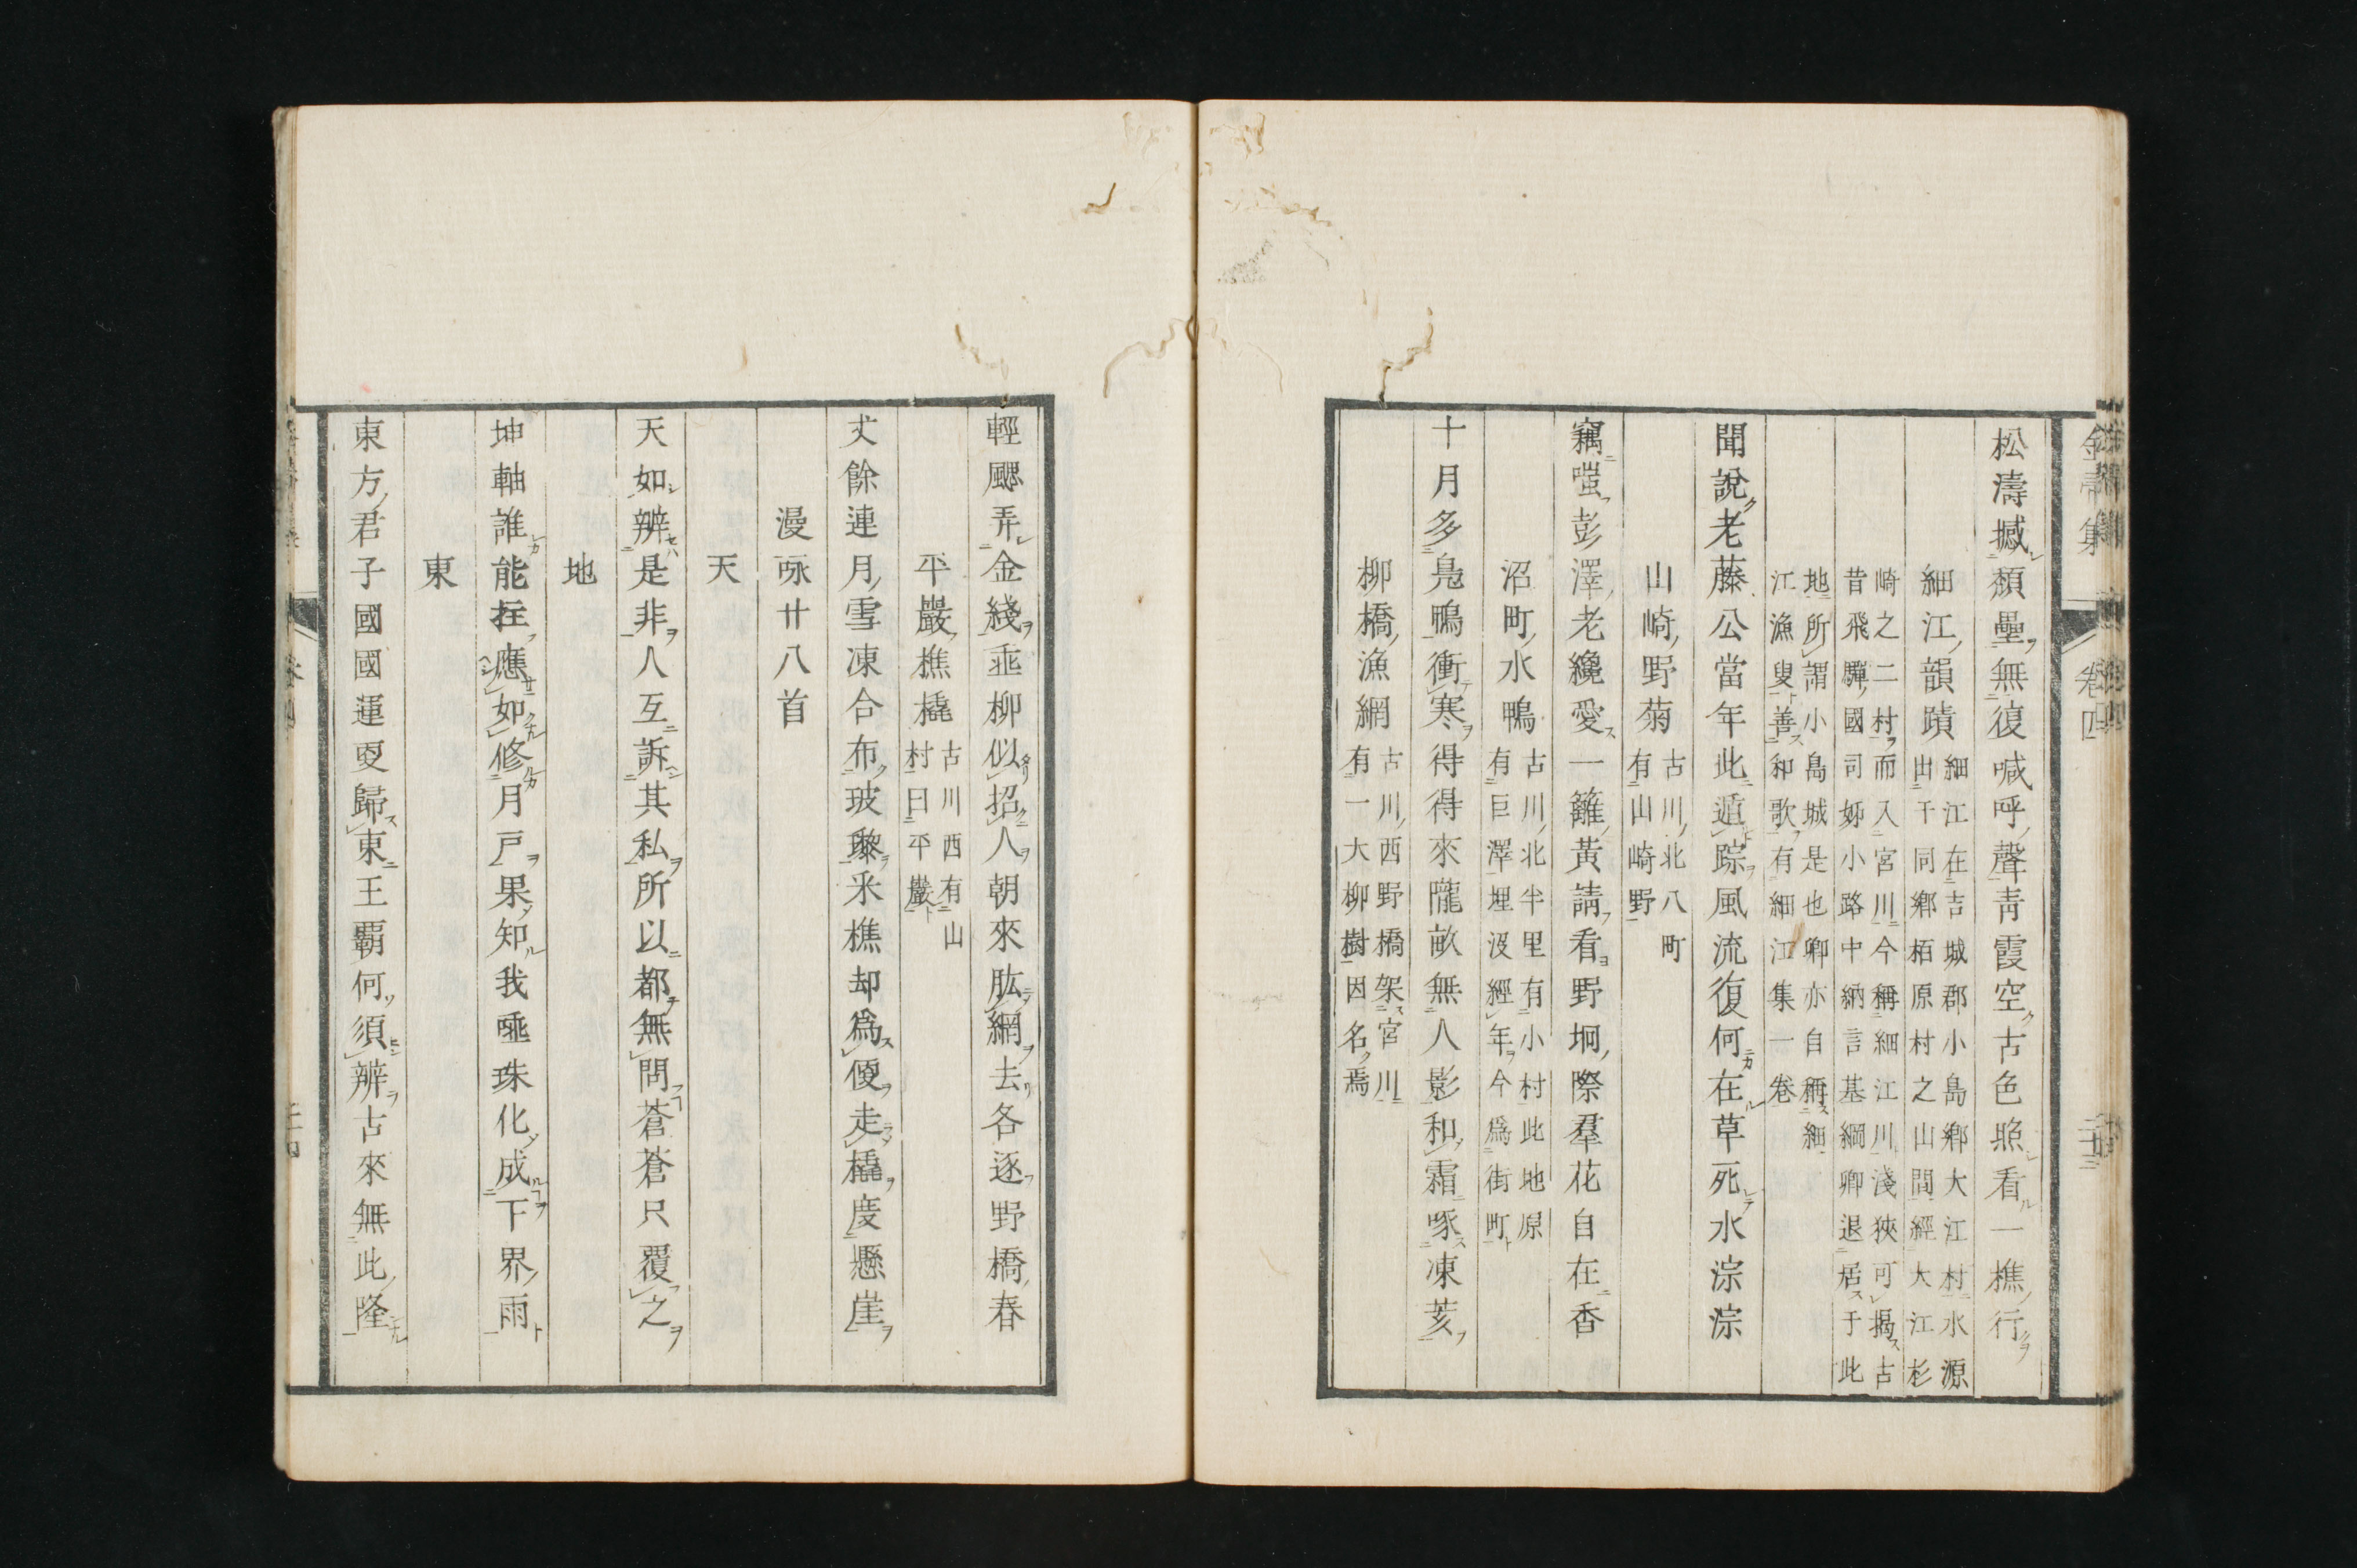 松濤撼頽壘無復喊呼聲青霞空古色照看一樵行
細江韻蹟
細江在吉城郡小島鄉大江村水源
出于同鄉栢原村之山間經大江杉
崎之二村而入宮川今稱細江川淺狹可揭古
昔飛驒國司姊小路中納言基綱卿退居于此
地所謂小島城是也卿亦自稱細
江漁叟善和歌有細江集一卷
聞說老藤公當年此遁踪風流復何在草死水淙淙
山崎野菊
古川北八町
有山崎野
竊嗤彭澤老纔愛一籬黃請看野坰際羣花自在香
沼町水鴨
古川北半里有小村此地原
有巨澤埋沒經年今爲街町
十月多鳧鴨衝寒得得來隴畝無人影和霜啄凍荄
柳橋漁網
古川西野橋架宮川
有一大柳樹因名焉
輕颸弄金綫垂柳似招人朝來肱網去各逐野橋春
平巖樵橇
古川西有山
村曰平巖
丈餘連月雪凍合布玻瓈釆樵却爲便走橇度懸崖
漫咏廿八首
天
天如辨是非人互訴其私所以都無問蒼蒼只覆之
地
坤軸誰能在應如修月戶果知我唾珠化成下界雨
東
東方君子國國運叓歸東王覇何須辨古來無此隆
卷四